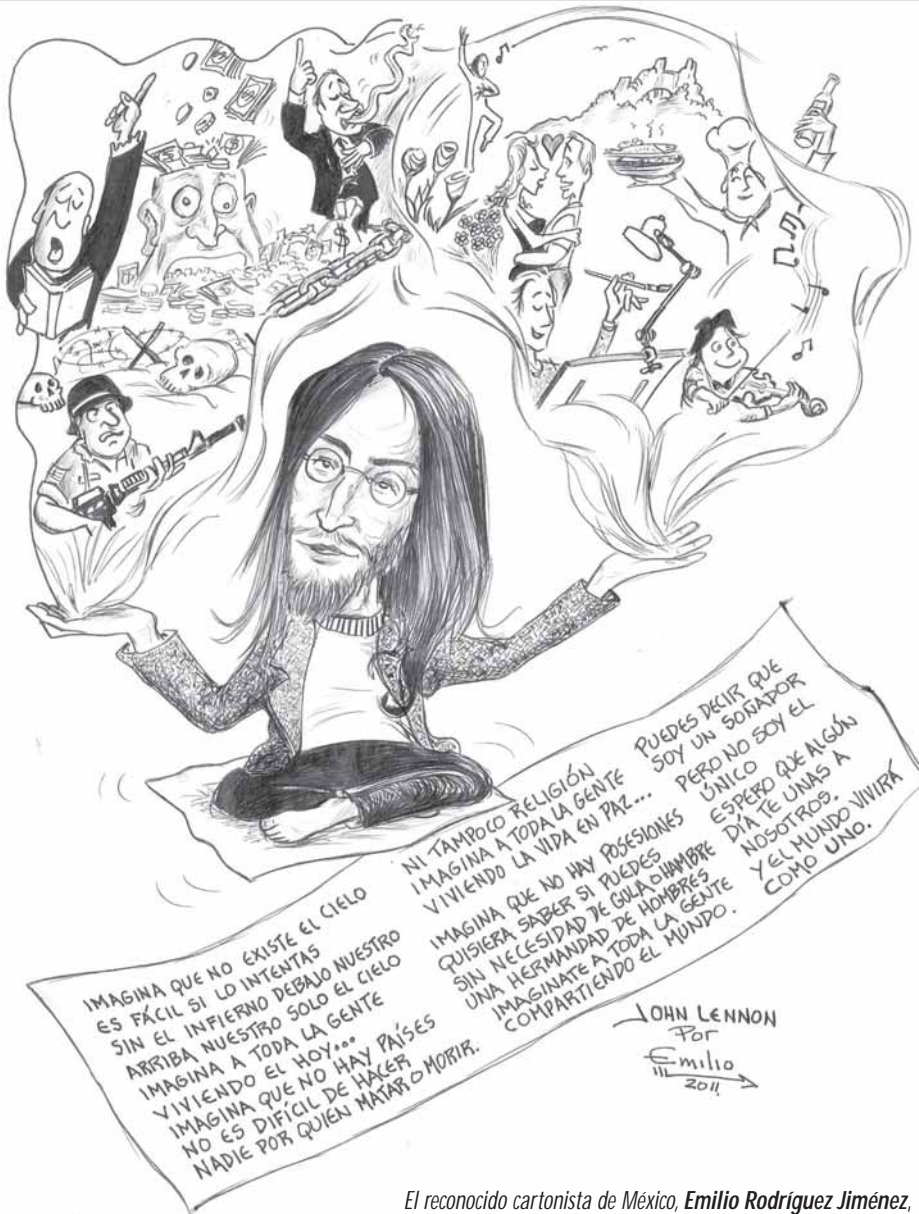 IMAGINA QUE NO EXISTE EL CIELO
ES FÁCIL SI LO INTENTAS
SIN EL INFIERNO DEBAJO NUESTRO
ARRIBA NUESTRO SOLO EL CIELO
IMAGINA A TODA LA GENTE
VIVIENDO EL HOY...
IMAGINA QUE NO HAY PAÍSES
NO ES DIFÍCIL DE HACER
NADIE POR QUIEN MATAR O MORIR.
NI TAMPOCO RELIGIÓN
IMAGINA A TODA LA GENTE
VIVIENDO LA VIDA EN PAZ...
IMAGINA QUE NO HAY POSESIONES
QUISIERA SABER SI PUEDES
SIN NECESIDAD DE GULA O HAMBRE
UNA HERMANDAD DE HOMBRES
IMAGINATE A TODA LA GENTE
COMPARTIENDO EL MUNDO.
PUEDES DECIR QUE
SOY UN SOÑADOR
PERO NO SOY EL
ÚNICO
ESPERO QUE ALGÚN
DÍA TE UNAS A
NOSOTROS.
Y EL MUNDO VIVIRÁ
COMO UNO.
JOHN LENNON
Por
Emilio
2011
El reconocido cartonista de México, Emilio Rodríguez Jiménez,